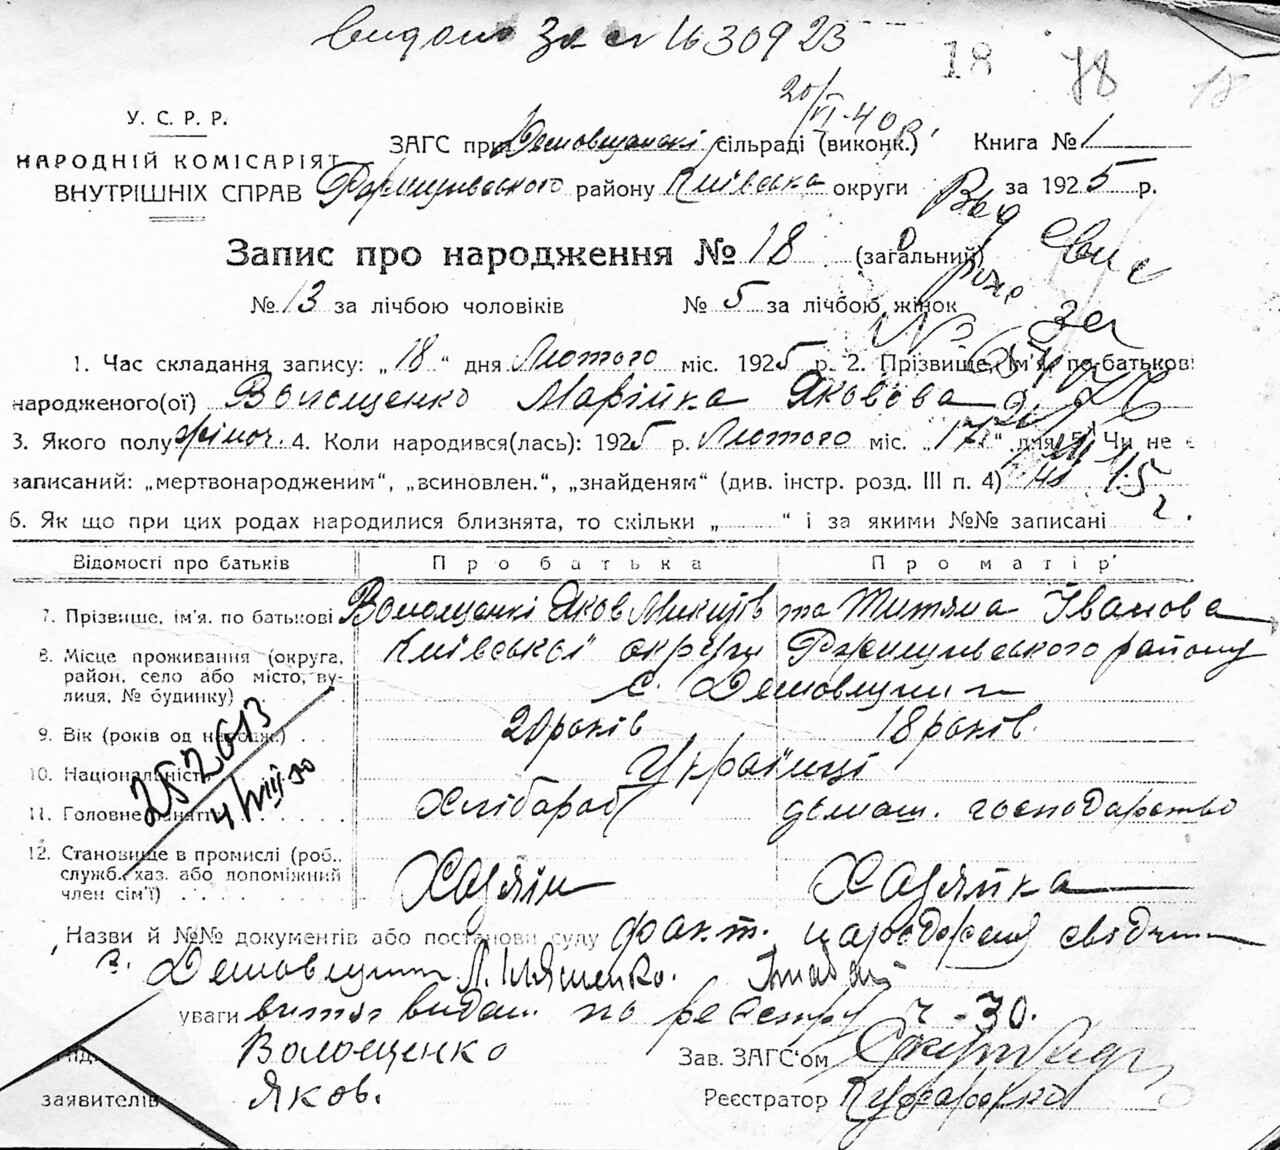 видано за с № 1630923
18 78 18
20/VI-40 р.
У. С. Р. Р.
НАРОДНІЙ КОМІСАРІЯТ
ВНУТРІШНІХ СПРАВ
ЗАГС при Демовщанскі сільраді (виконк.) Книга № 1
Ржищівського району Київська округи за 1925 р.
Запис про народження № 18 (загальний)
№ 13 за лічбою чоловіків № 5 за лічбою жінок
1. Час складання запису: „18“ дня Лютого міс. 1925 р. 2. Прізвище, ім'я, по-батькові
народженого(ої) Волощенко Марійка Яковова
3. Якого полу жіноч. 4. Коли народився(лась): 1925 р. Лютого міс. „17“ дня 5. Чи не є
записаний: „мертвонародженим“, „всиновлен.“, „знайденям“ (див. інстр. розд. III п. 4)
6. Як що при цих родах народилися близнята, то скільки „ “ і за якими №№ записані
Відомості про батьків Про батька Про матір'
7. Прізвище, ім'я, по батькові Волощенкі Яков Микитів та Титяна Іванова
8. Місце проживання (округа, Київської округи Ржищівського району
район, село або місто, ву-
лиця, № будинку) с. Демовщини
9. Вік (років од народж.) 20 років 18 років
10. Національність Українці
11. Головне заняття Хлібороб домаш. господарство
12. Становище в промислі (роб.,
служб., хаз. або допоміжний
член сім'ї) Хазяїн Хазяйка
252613
4/VIII 30
Назви й №№ документів або постанови суду факт. народження свідчить
з. Демовщини Л. Іляшенко.
уваги витяг видан по реєстру ч - 30.
Під. Волощенко Зав. ЗАГС'ом
заявителів Яков. Реєстратор